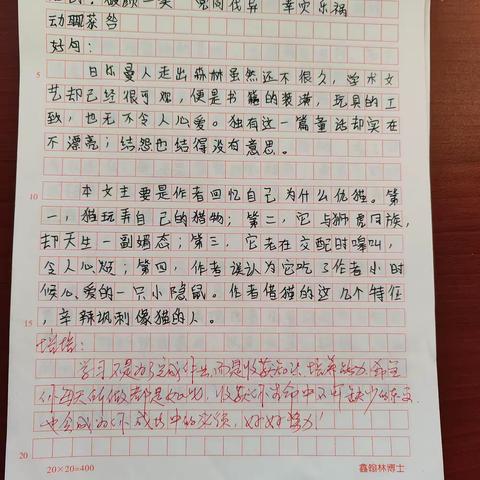 破颜一笑 党同伐异 幸灾乐祸
动辄获咎
好句：
5
日尔曼人走出森林虽然还不很久，学术文
艺却已经很可观，便是书籍的装潢，玩具的工
致，也无不令人心爱。独有这一篇童话却实在
不漂亮；结怨也结得没有意思。
10
本文主要是作者回忆自己为什么仇猫。第
一，猫玩弄自己的猎物；第二，它与狮虎同族，
却天生一副媚态；第三，它老在交配时嗥叫，
令人心烦；第四，作者误认为它吃了作者小时
候心爱的一只小隐鼠。作者借猫的这几个特征，
15
辛辣讽刺像猫的人。
学习不是为了完成作业，而是收获知识、培养能力，希望
你每天的做都是如此，收获你生命中不可缺少的东西，
也会成为你成长中的必须，好好努力！
20
20×20=400
鑫翰林博士